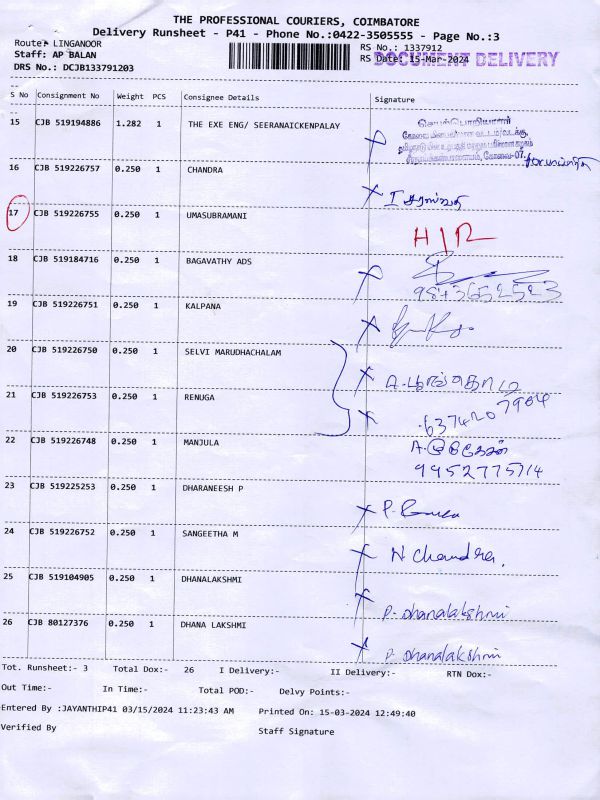 THE PROFESSIONAL COURIERS, COIMBATORE
Delivery Runsheet - P41 - Phone No.:0422-3505555 - Page No.:3
Route: LINGANOOR
RS No.: 1337912
Staff: AP BALAN
RS Date: 15-Mar-2024
DOCUMENT DELIVERY
DRS No.: DCJB133791203
S No Consignment No Weight PCS Consignee Details Signature
15 CJB 519194886 1.282 1 THE EXE ENG/ SEERANAICKENPALAY
செயற்பொறியாளர்
16 CJB 519226757 0.250 1 CHANDRA
17 CJB 519226755 0.250 1 UMASUBRAMANI
18 CJB 519184716 0.250 1 BAGAVATHY ADS
9843652523
19 CJB 519226751 0.250 1 KALPANA
20 CJB 519226750 0.250 1 SELVI MARUDHACHALAM
21 CJB 519226753 0.250 1 RENUGA
6374207984
22 CJB 519226748 0.250 1 MANJULA
23 CJB 519225253 0.250 1 DHARANEESH P
24 CJB 519226752 0.250 1 SANGEETHA M
N Chandra.
25 CJB 519104905 0.250 1 DHANALAKSHMI
P. Dhanalakshmi
26 CJB 80127376 0.250 1 DHANA LAKSHMI
P. Dhanalakshmi
Tot. Runsheet:- 3 Total Dox:- 26 I Delivery:- II Delivery:- RTN Dox:-
Out Time:- In Time:- Total POD:- Delvy Points:-
Entered By :JAYANTHIP41 03/15/2024 11:23:43 AM Printed On: 15-03-2024 12:49:40
Verified By Staff Signature